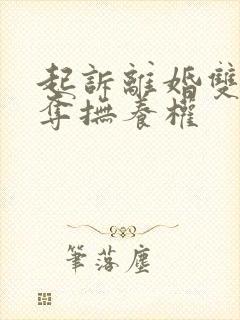 起訴離婚雙
奪撫養權
筆落塵